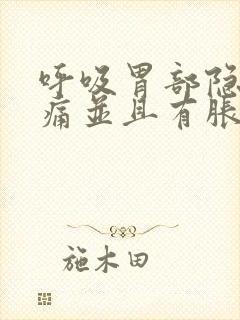 呼吸胃部隐
痛並且有脹
施木田